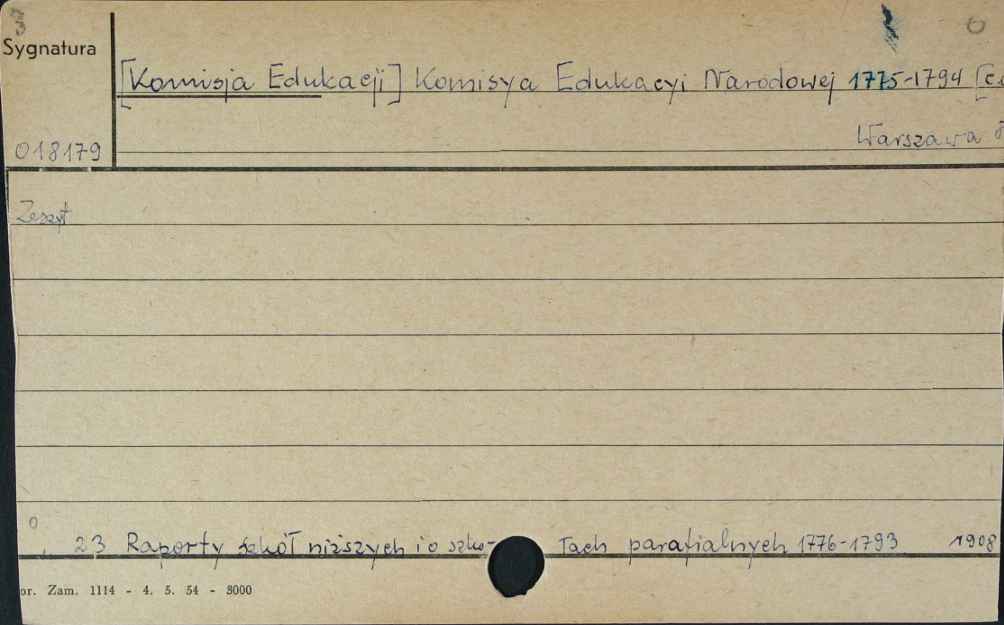 3
Sygnatura
[Komisja Edukacji] Komisya Edukacyi Narodowej 1775-1794
018179
Warszawa
Zeszyt
23 Raporty szkół niższych i o szko- łach parafialnych 1776-1793 1908
or. Zam. 1114 - 4. 5. 54 - 3000